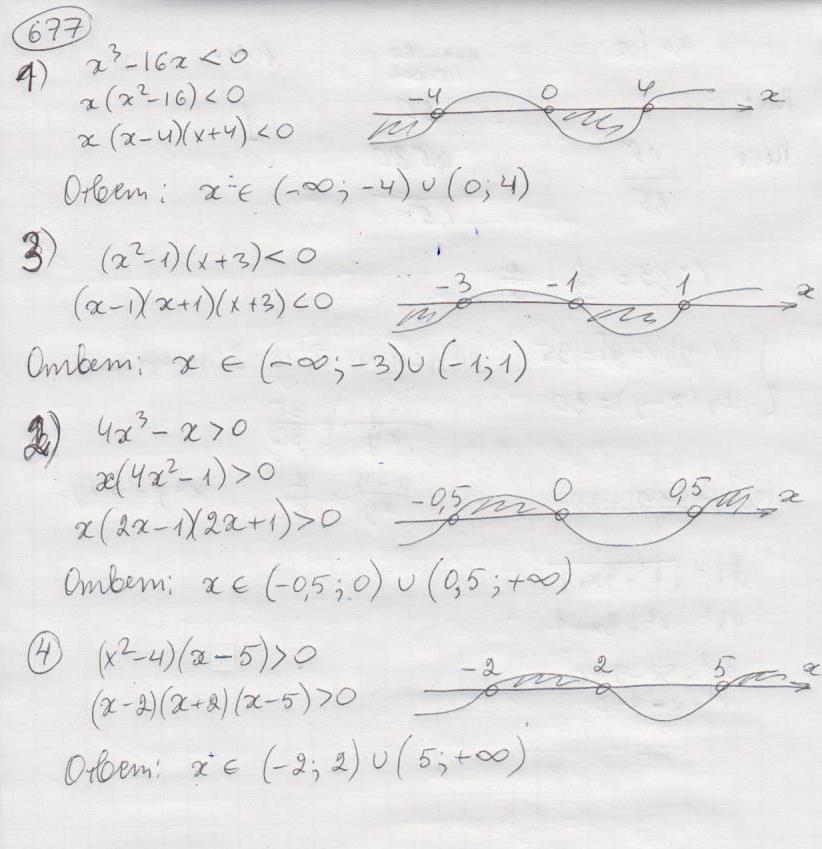 677
1) x³ - 16x < 0
x(x² - 16) < 0
x(x-4)(x+4) < 0
-4 0 4 x
Ответ: x ∈ (-∞; -4) ∪ (0; 4)
3) (x² - 1)(x+3) < 0
(x-1)(x+1)(x+3) < 0
-3 -1 1 x
Ответ: x ∈ (-∞; -3) ∪ (-1; 1)
2) 4x³ - x > 0
x(4x² - 1) > 0
x(2x-1)(2x+1) > 0
-0,5 0 0,5 x
Ответ: x ∈ (-0,5; 0) ∪ (0,5; +∞)
4 (x² - 4)(x - 5) > 0
(x-2)(x+2)(x-5) > 0
-2 2 5 x
Ответ: x ∈ (-2; 2) ∪ (5; +∞)